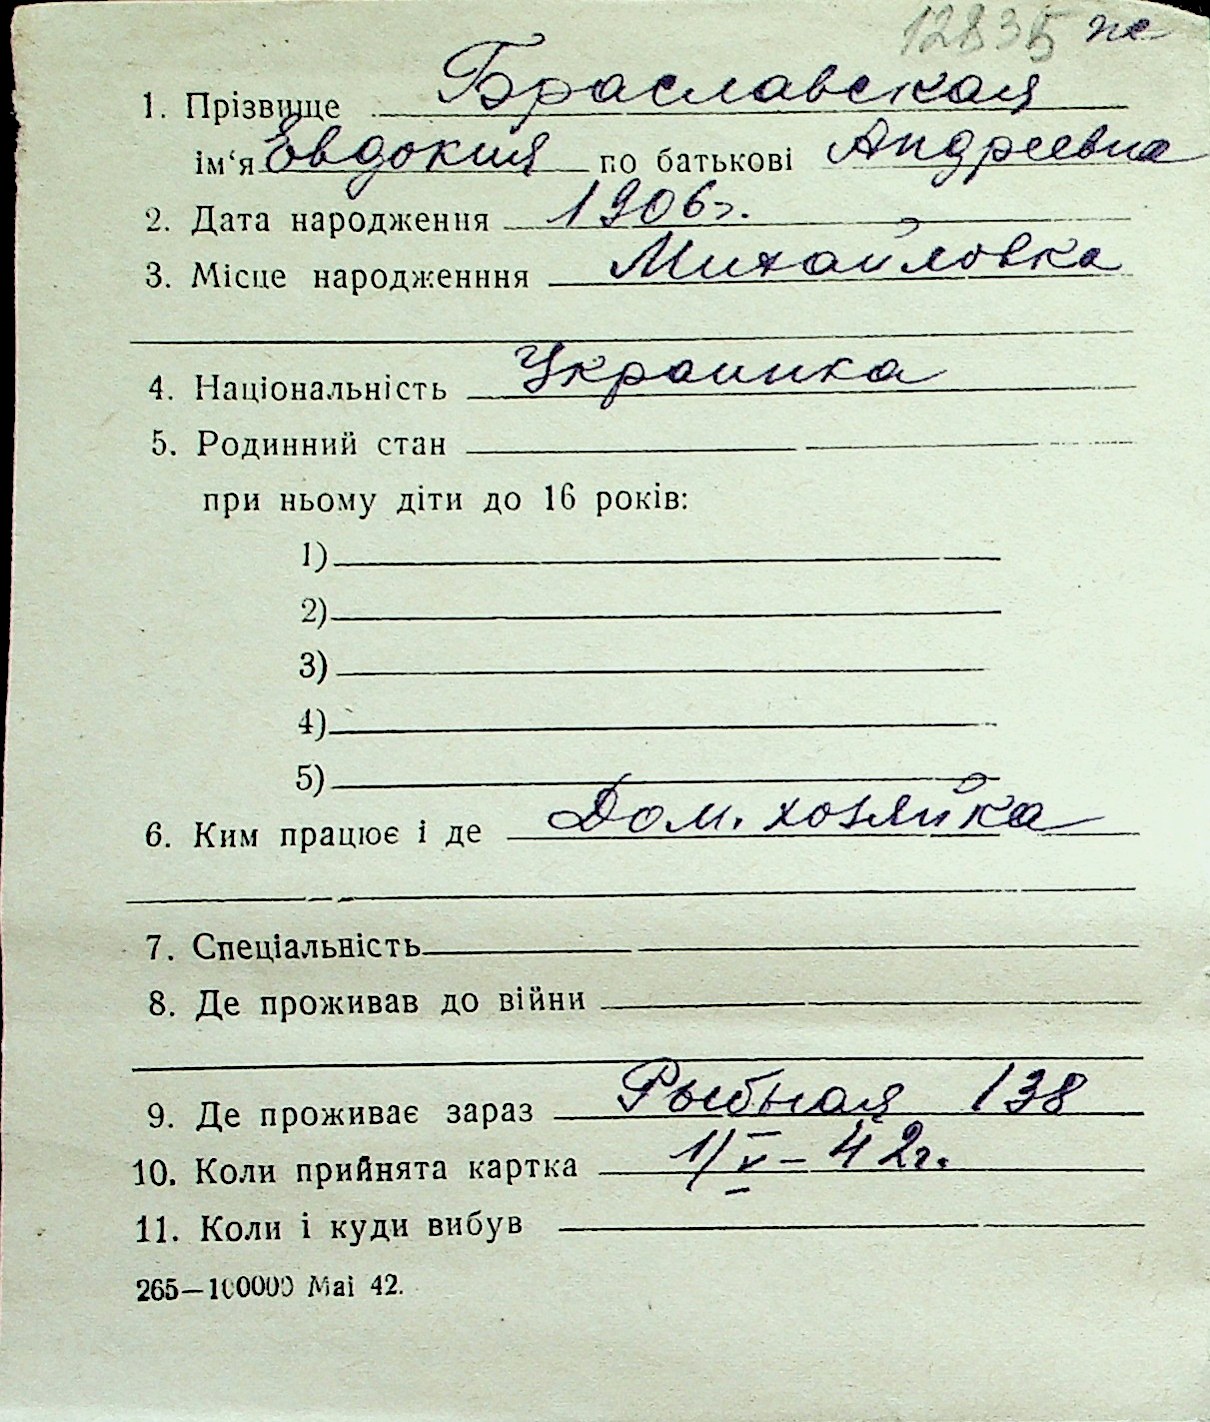 12835 же
1. Прізвище Браславская
ім‘я Евдокия по батькові Андреевна
2. Дата народження 1906г.
3. Місце народженння Михайловка
4. Національність Украинка
5. Родинний стан
при ньому діти до 16 років:
1)
2)
3)
4)
5)
6. Ким працює і де Дом. хозяйка
7. Спеціальність
8. Де проживав до війни
9. Де проживає зараз Рыбная 138
10. Коли прийнята картка 1/V – 42г.
11. Коли і куди вибув
265—100000 Mai 42.